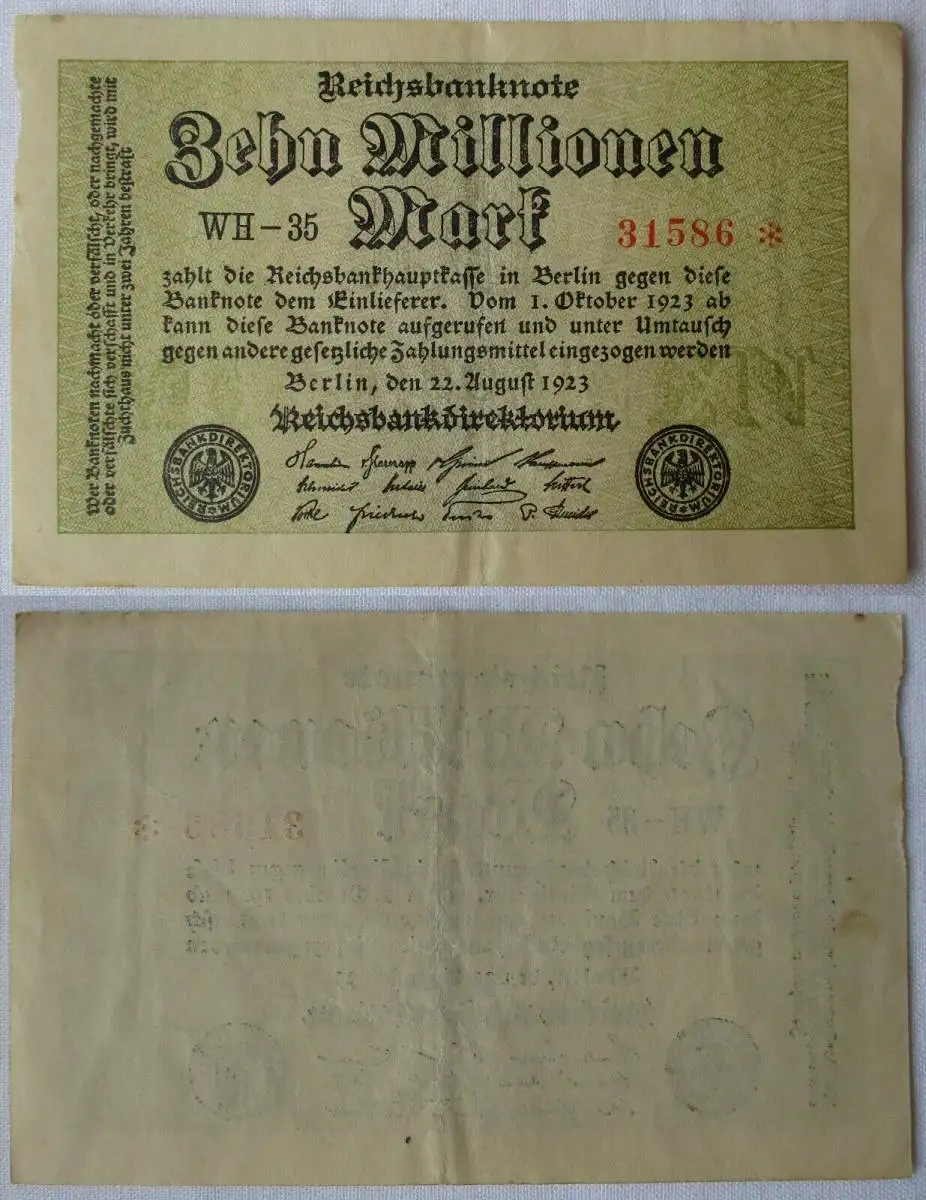 Reichsbanknote
Zehn Millionen
Mark
WH-35
31586 *
zahlt die Reichsbankhauptkasse in Berlin gegen diese
Banknote dem Einlieferer. Vom 1. Oktober 1923 ab
kann diese Banknote aufgerufen und unter Umtausch
gegen andere gesetzliche Zahlungsmittel eingezogen werden
Berlin, den 22. August 1923
Reichsbankdirektorium
REICHSBANKDIREKTORIUM
REICHSBANKDIREKTORIUM
Wer Banknoten nachmacht oder verfälscht, oder nachgemachte
oder verfälschte sich verschafft und in Verkehr bringt, wird mit
Zuchthaus nicht unter zwei Jahren bestraft
WH-35